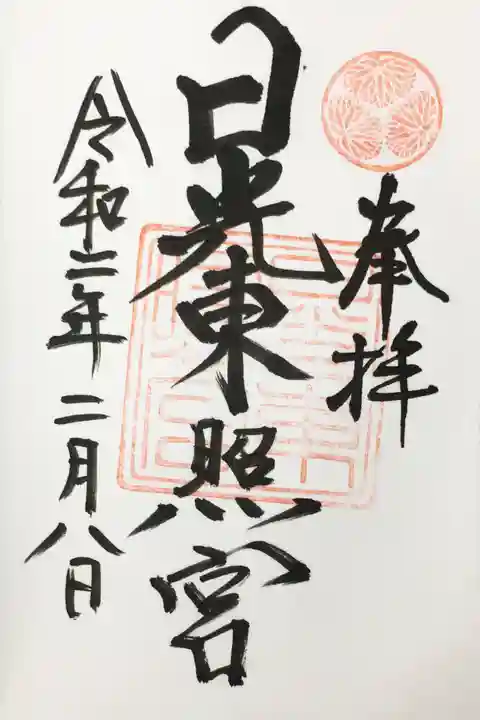 奉拝
日光東照宮
令和二年二月八日